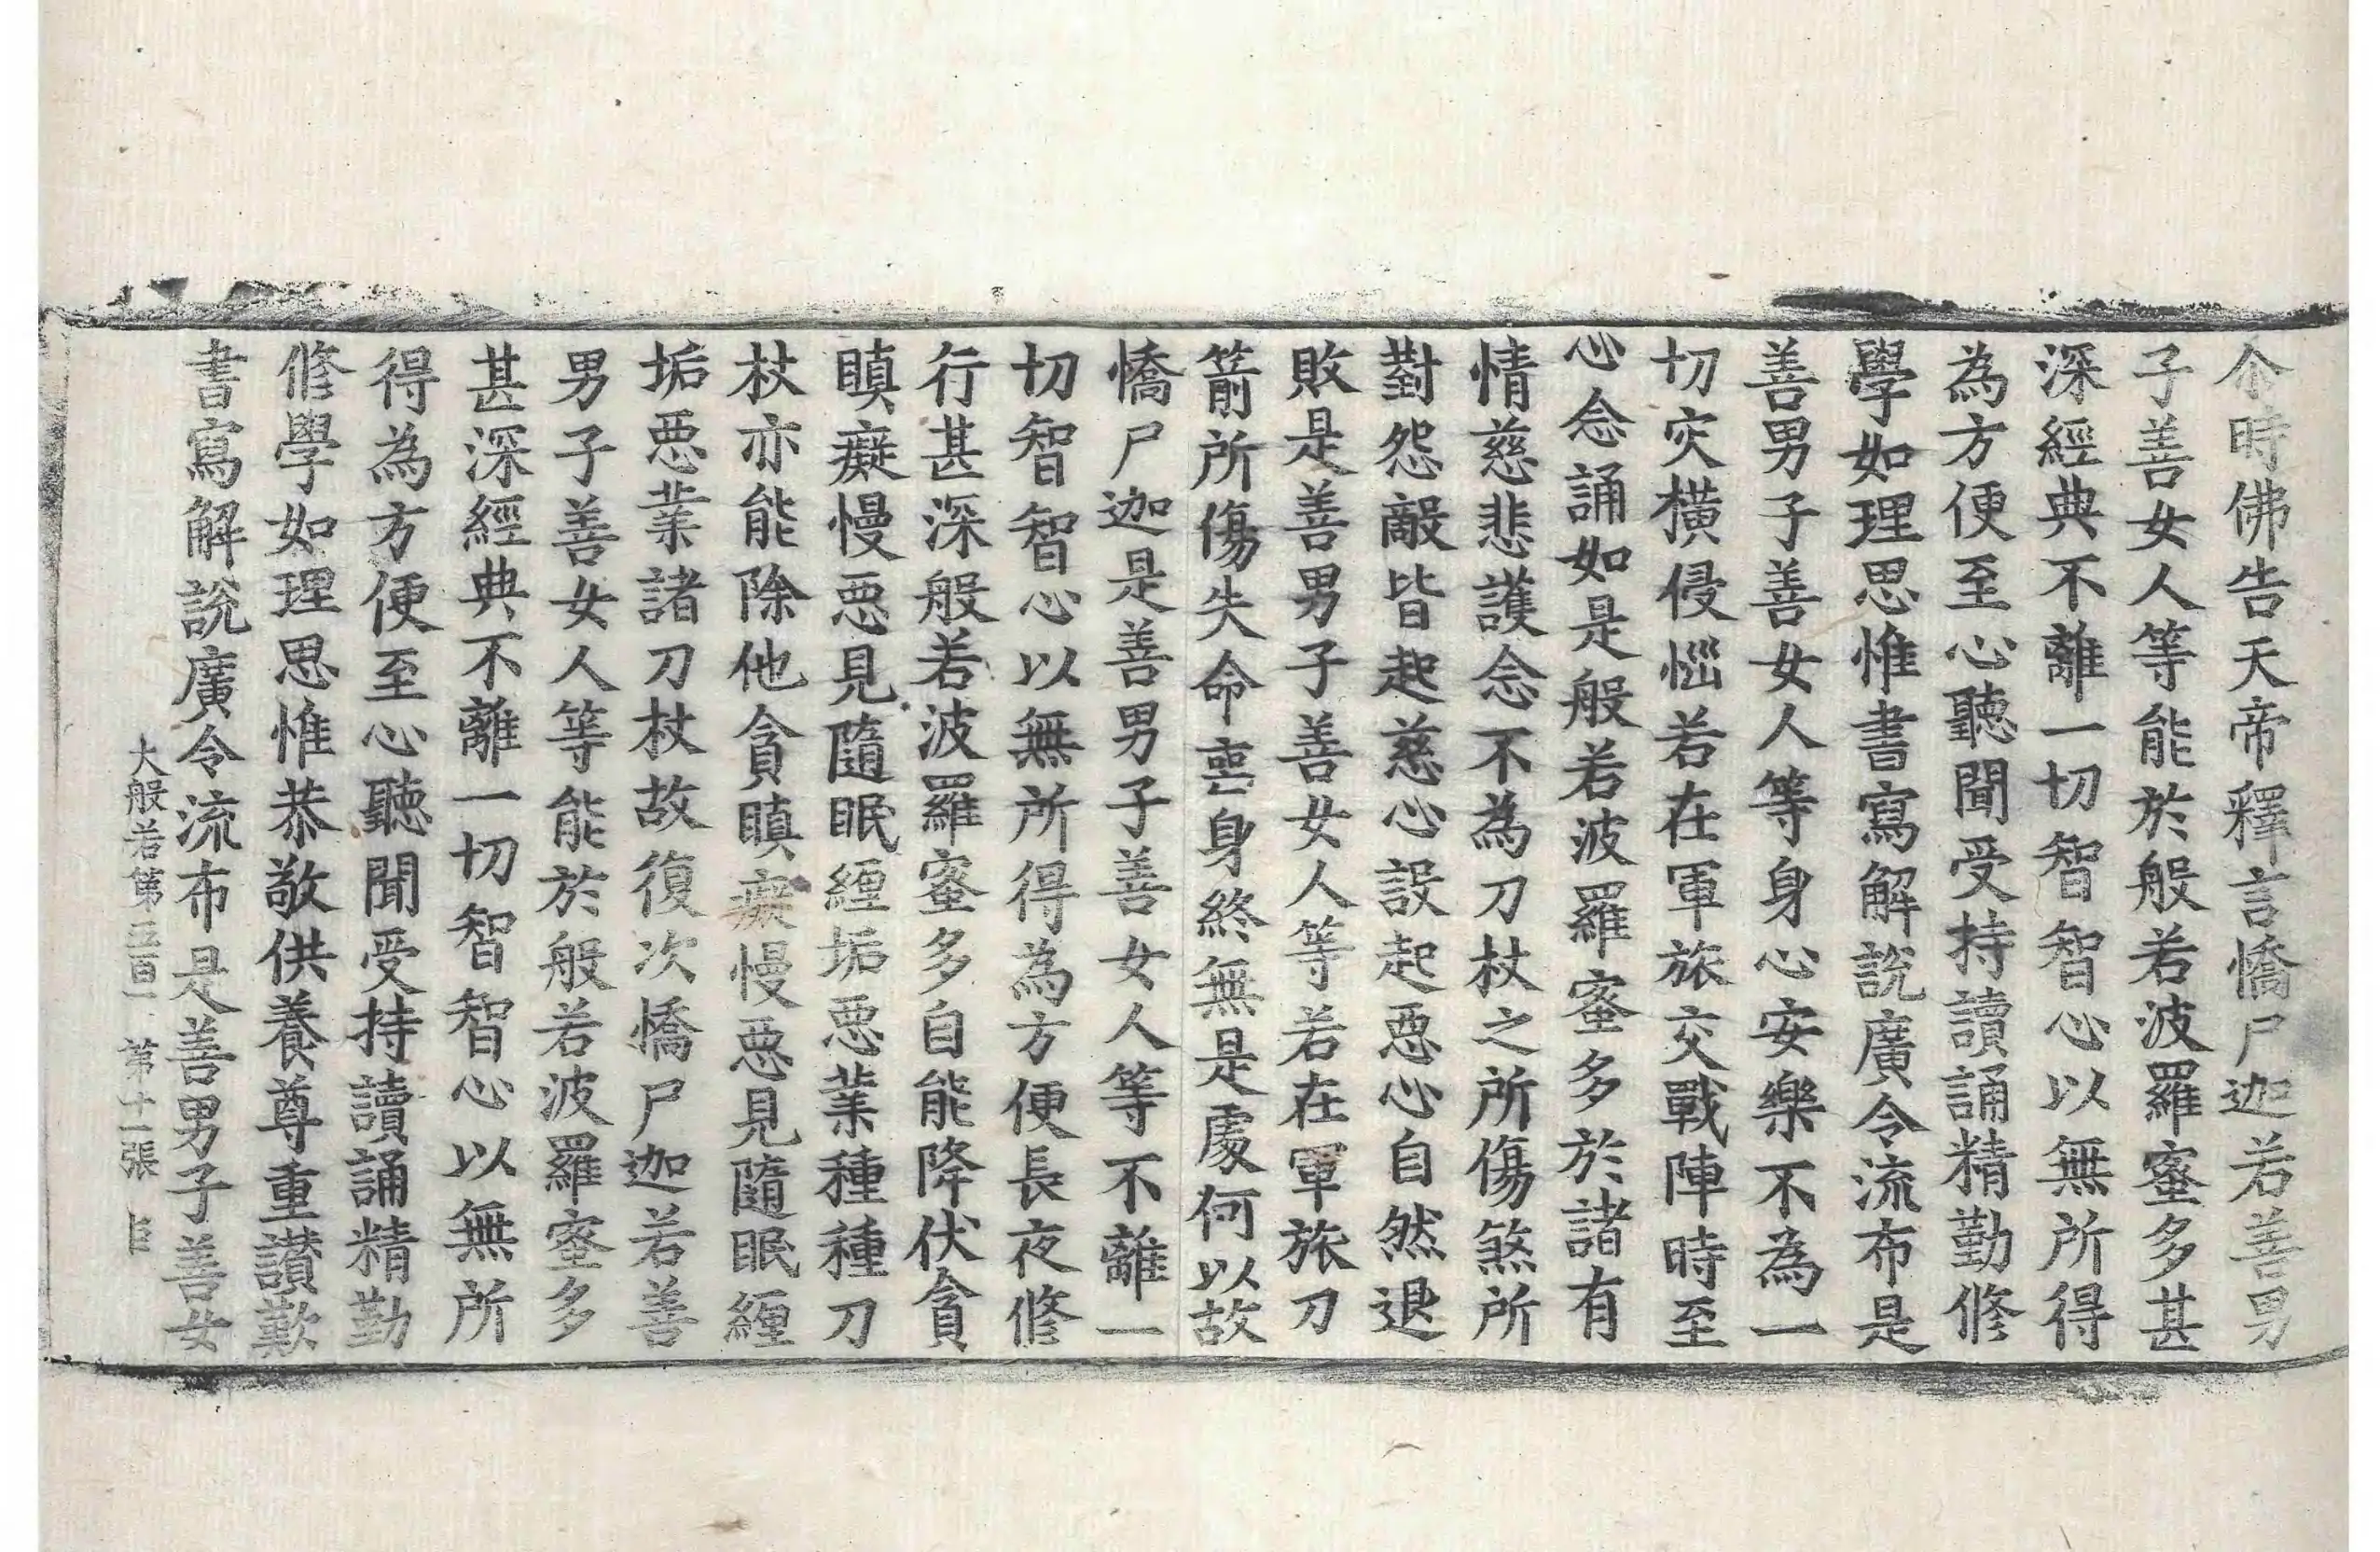 尒時佛告天帝釋言憍尸迦若善男
子善女人等能於般若波羅蜜多甚
深經典不離一切智智心以無所得
為方便至心聽聞受持讀誦精勤修
學如理思惟書寫解說廣令流布是
善男子善女人等身心安樂不為一
切灾橫侵惱若在軍旅交戰陣時至
心念誦如是般若波羅蜜多於諸有
情慈悲護念不為刀杖之所傷煞所
對怨敵皆起慈心設起惡心自然退
敗是善男子善女人等若在軍旅刀
箭所傷失命喪身終無是處何以故
憍尸迦是善男子善女人等不離一
切智智心以無所得為方便長夜修
行甚深般若波羅蜜多自能降伏貪
瞋癡慢惡見隨眠纏垢惡業種種刀
杖亦能除他貪瞋癡慢惡見隨眠纏
垢惡業諸刀杖故復次憍尸迦若善
男子善女人等能於般若波羅蜜多
甚深經典不離一切智智心以無所
得為方便至心聽聞受持讀誦精勤
修學如理思惟恭敬供養尊重讃歎
書寫解說廣令流布是善男子善女
大般若第五百一 第十一張